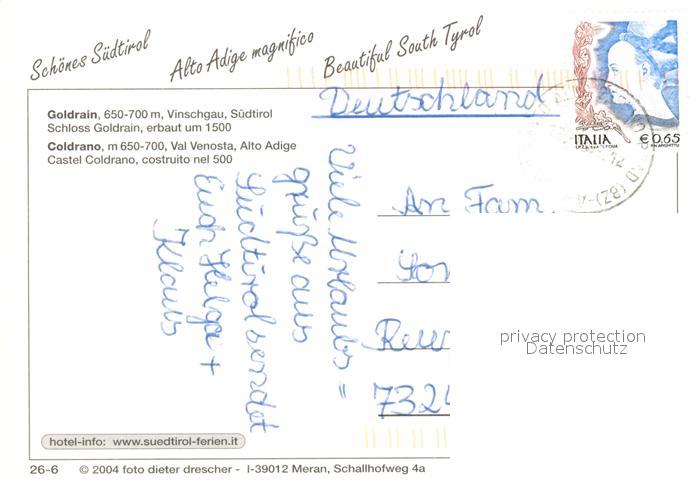 Schönes Südtirol
Alto Adige magnifico
Beautiful South Tyrol
Goldrain, 650-700 m, Vinschgau, Südtirol
Schloss Goldrain, erbaut um 1500
Coldrano, m 650-700, Val Venosta, Alto Adige
Castel Coldrano, costruito nel 500
Viele Urlaubs =
grüße aus
Südtirol sendet
Euch Helga +
Klaus
ITALIA
€ 0,65
Deutschland
An Fam.
732
privacy protection
Datenschutz
hotel-info: www.suedtirol-ferien.it
26-6 © 2004 foto dieter drescher - I-39012 Meran, Schallhofweg 4a